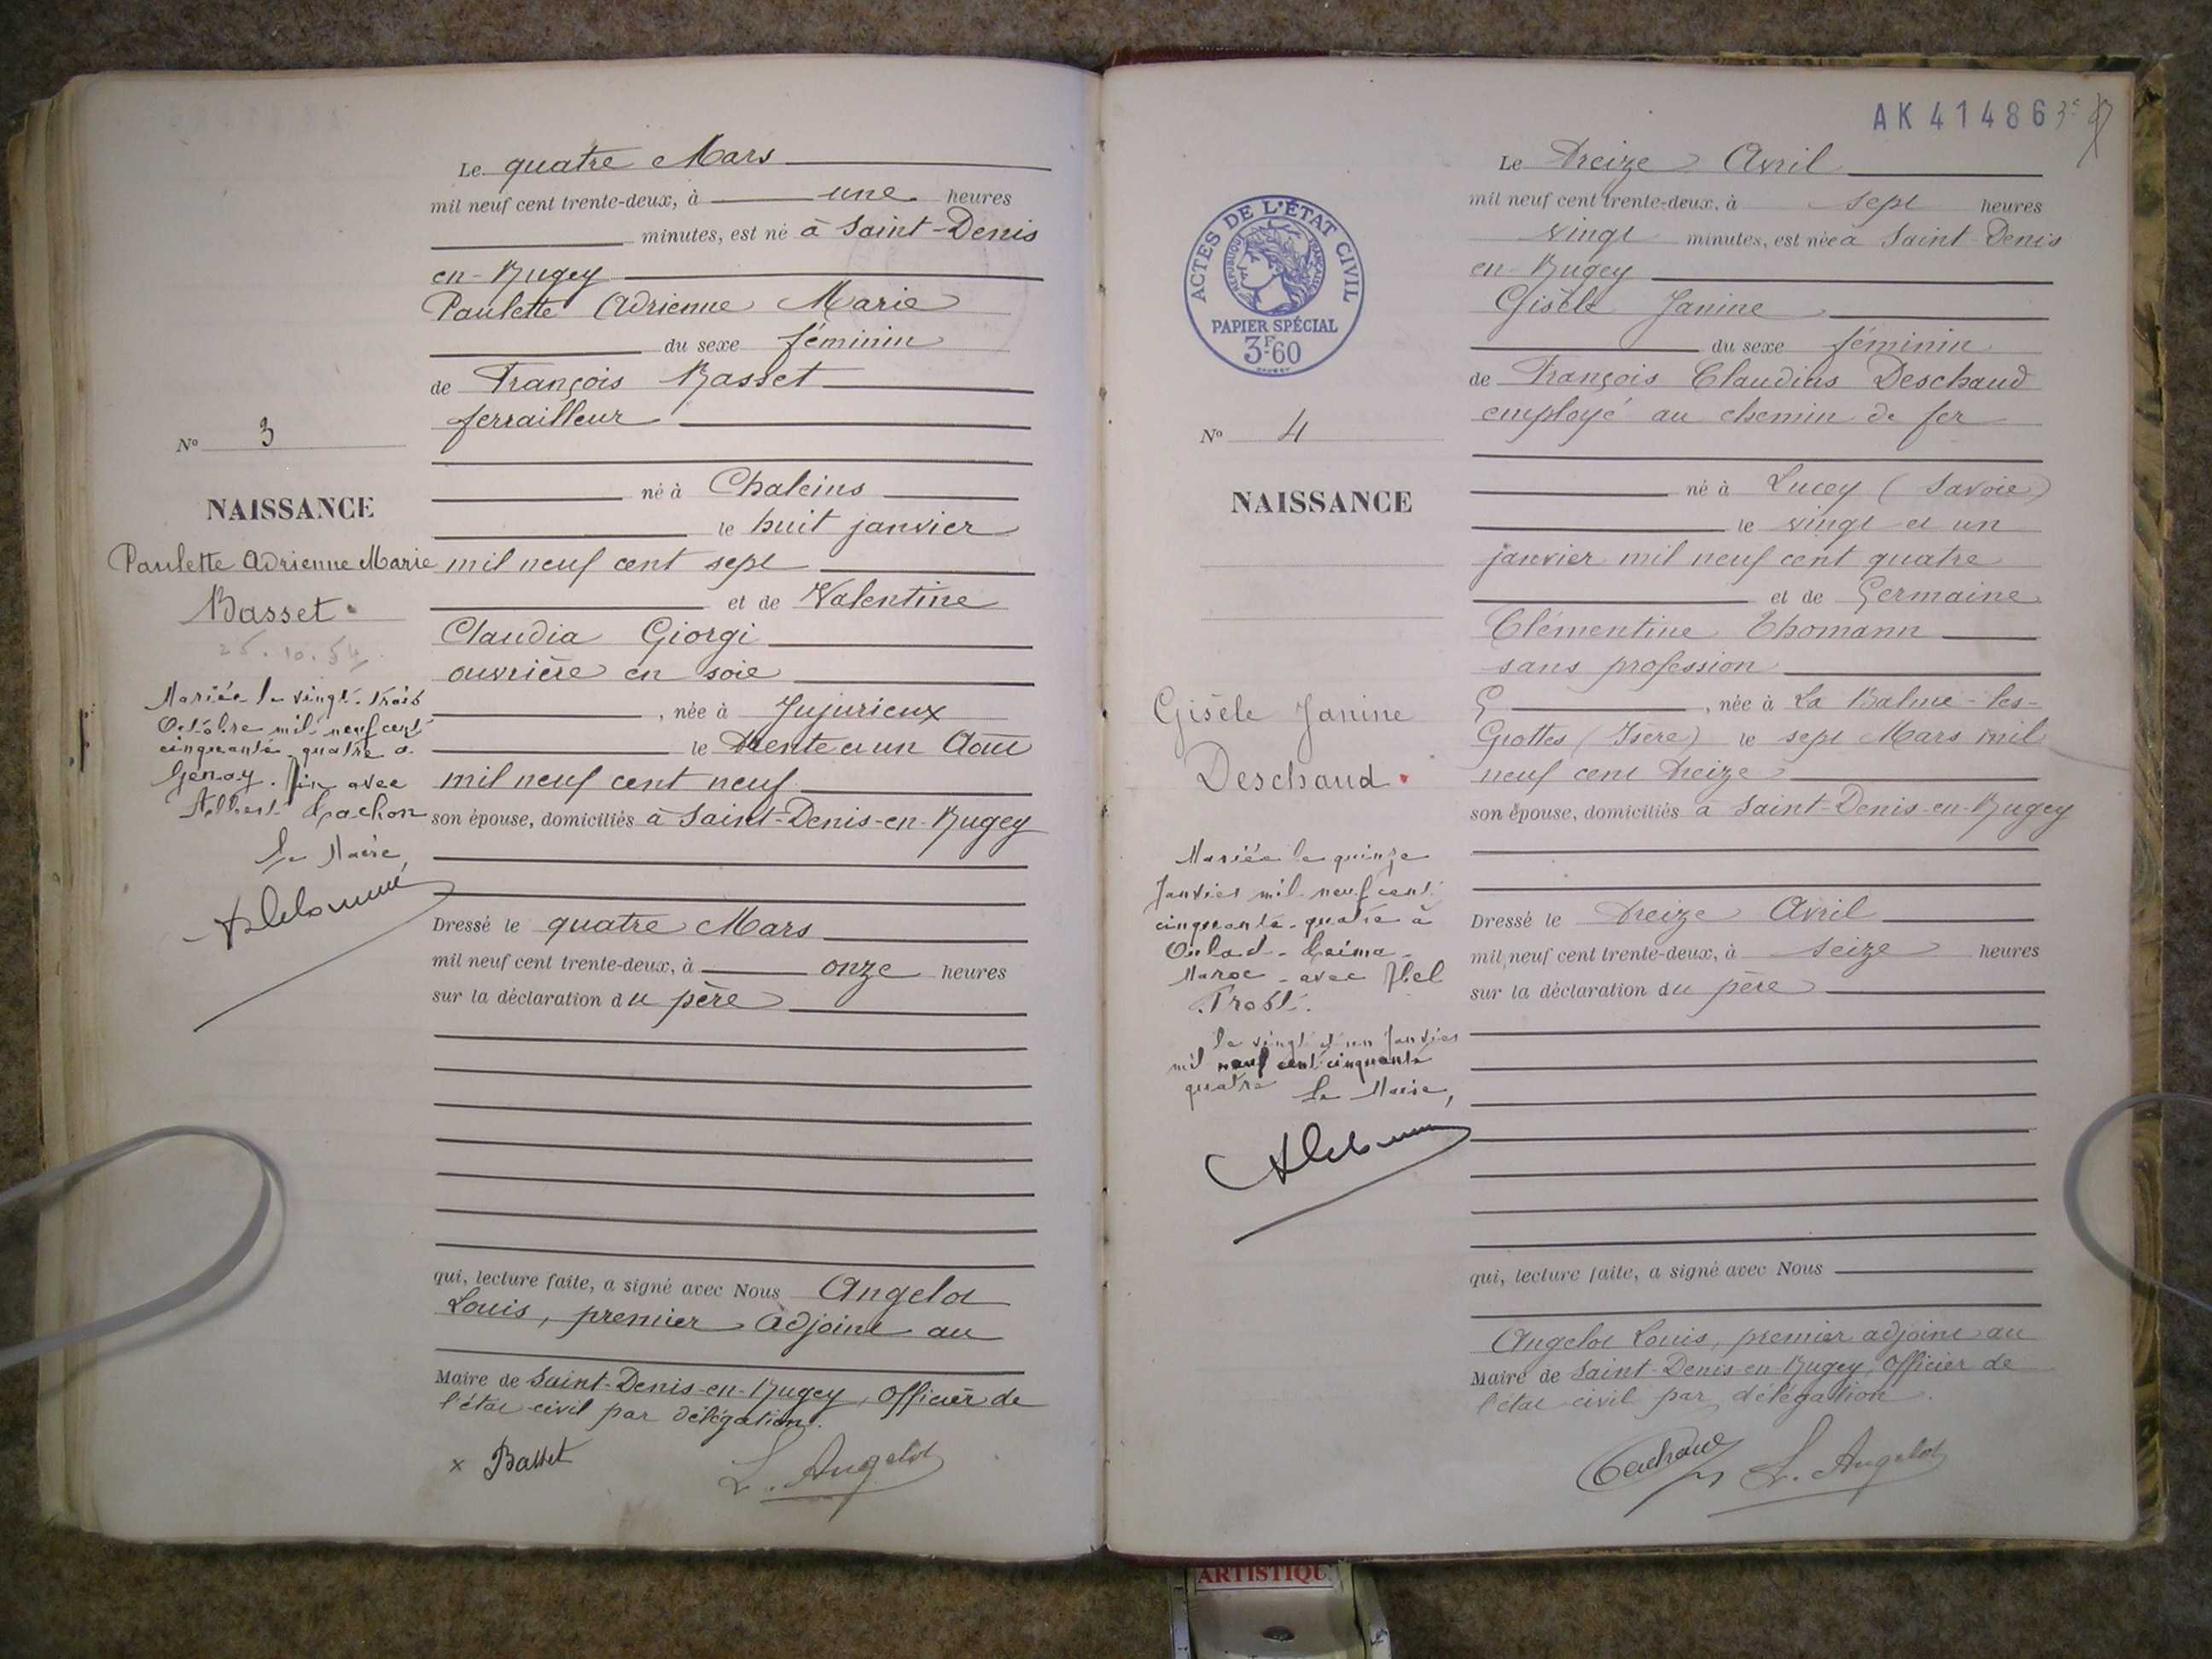 Le quatre Mars
mil neuf cent trente-deux, à une heures
minutes, est né à Saint-Denis
en-Bugey
Paulette Adrienne Marie
du sexe féminin
de François Basset
ferrailleur
né à Chaleins
le huit janvier
mil neuf cent sept
et de Valentine
Claudia Giorgi
ouvrière en soie
, née à Jujurieux
le trente et un Août
mil neuf cent neuf
son épouse, domiciliés à Saint-Denis-en-Bugey
Dressé le quatre Mars
mil neuf cent trente-deux, à onze heures
sur la déclaration du père
qui, lecture faite, a signé avec Nous Angelot
Louis, premier Adjoint au
Maire de Saint-Denis-en-Bugey, Officier de
l'état civil par délégation.
x Basset L. Angelot
No 3
NAISSANCE
Paulette Adrienne Marie
Basset
25.10.54
Mariée le vingt-trois
Octobre mil neuf cent
cinquante quatre à
Genay. Ain avec
Albert
Le Maire,
AK 41486
ACTES DE L'ÉTAT CIVIL
RÉPUBLIQUE FRANÇAISE
PAPIER SPÉCIAL
3F60
No 4
NAISSANCE
Gisèle Janine
Deschaud
Mariée le quinze
Janvier mil neuf cent
cinquante-quatre à
Maroc - avec Abel
Trost.
le vingt et un Janvier
mil neuf cent cinquante
quatre Le Maire,
Le treize Avril
mil neuf cent trente-deux, à sept heures
vingt minutes, est née à Saint-Denis
en-Bugey
Gisèle Janine
du sexe féminin
de François Claudius Deschaud
employé au chemin de fer
né à Lucey (Savoie)
le vingt et un
janvier mil neuf cent quatre
et de Germaine
Clémentine Thomann
sans profession
, née à La Balme-les-
Grottes (Isère) le sept Mars mil
neuf cent treize
son épouse, domiciliés à Saint-Denis-en-Bugey
Dressé le treize Avril
mil neuf cent trente-deux, à seize heures
sur la déclaration du père
qui, lecture faite, a signé avec Nous
Angelot Louis, premier adjoint au
Maire de Saint-Denis-en-Bugey, Officier de
l'état civil par délégation.
L. Angelot
ARTISTIQU